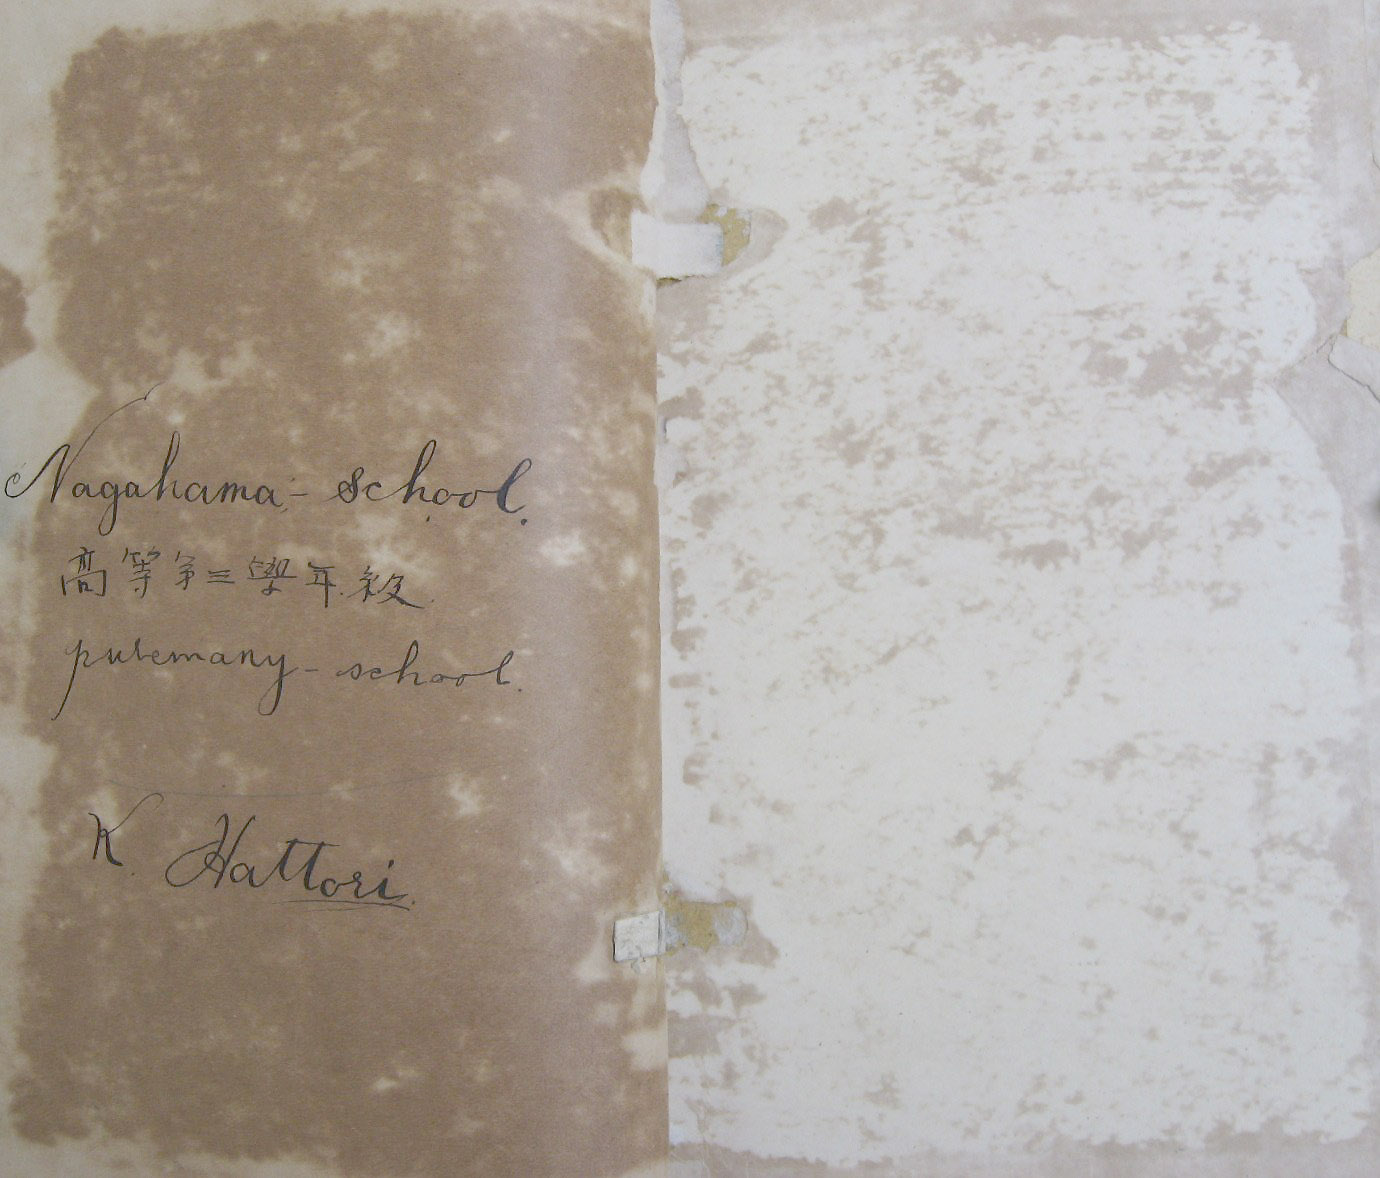 Nagahama - school.
高等第三學年級
putemany - school.
K. Hattori.